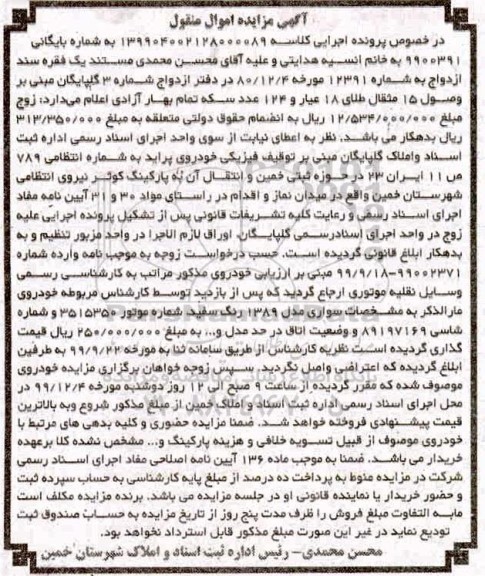 آگهی مزایده اموال منقول
در خصوص پرونده اجرایی کلاسه ۱۳۹۹۰۴۰۰۲۱۲۸۰۰۰۰۸۹ به شماره بایگانی
۹۹۰۰۳۹۱ به خانم انسیه هدایتی و علیه آقای محسن محمدی مستند یک فقره سند
ازدواج به شماره ۱۲۳۹۱ مورخه ۸۰/۱۲/۴ در دفتر ازدواج شماره ۳ گلپایگان مبنی بر
وصول ۱۵ مثقال طلای ۱۸ عیار و ۱۲۴ عدد سکه تمام بهار آزادی اعلام می‌دارد: زوج
مبلغ ۱۲/۵۳۴/۰۰۰/۰۰۰ ریال به انضمام حقوق دولتی متعلقه به مبلغ ۳۱۳/۳۵۰/۰۰۰
ریال بدهکار می باشد. نظر به اعطای نیابت از سوی واحد اجرای اسناد رسمی اداره ثبت
اسناد واملاک گلپایگان مبنی بر توقیف فیزیکی خودروی پراید به شماره انتظامی ۷۸۹
ص ۱۱ ایران ۲۳ در حوزه ثبتی خمین و انتقال آن به پارکینگ کوثر نیروی انتظامی
شهرستان خمین واقع در میدان نماز و اقدام در راستای مواد ۳۰ و ۳۱ آیین نامه مفاد
اجرای اسناد رسمی و رعایت کلیه تشریفات قانونی پس از تشکیل پرونده اجرایی علیه
زوج در واحد اجرای اسنادرسمی گلپایگان، اوراق لازم الاجرا در واحد مزبور تنظیم و به
بدهکار ابلاغ قانونی گردیده است. حسب درخواست زوجه به موجب نامه وارده شماره
۹۹/۹/۱۸-۹۹۰۰۲۳۷۱ مبنی بر ارزیابی خودروی مذکور مراتب به کارشناسی رسمی
وسایل نقلیه موتوری ارجاع گردید که پس از بازدید توسط کارشناس مربوطه خودروی
مارالذکر به مشخصات سواری مدل ۱۳۸۹ رنگ سفید شماره موتور ۳۵۱۵۳۵۰ و شماره
شاسی ۸۹۱۹۷۱۶۹ و وضعیت اتاق در حد مدل و... به مبلغ ۲۵۰/۰۰۰/۰۰۰ ریال قیمت
گذاری گردیده است نظریه کارشناس از طریق سامانه ثنا به مورخه ۹۹/۹/۲۲ به طرفین
ابلاغ گردیده که اعتراضی واصل نگردید. سپس زوجه خواهان برگزاری مزایده خودروی
موصوف شده که مقرر گردیده از ساعت ۹ صبح الی ۱۲ روز دوشنبه مورخه ۹۹/۱۲/۴ در
محل اجرای اسناد رسمی اداره ثبت اسناد و املاک خمین از مبلغ مذکور شروع وبه بالاترین
قیمت پیشنهادی فروخته خواهد شد. ضمنا مزایده حضوری و کلیه بدهی های مرتبط با
خودروی موصوف از قبیل تسویه خلافی و هزینه پارکینگ و... مشخص نشده کلا برعهده
خریدار می باشد. ضمنا به موجب ماده ۱۳۶ آیین نامه اصلاحی مفاد اجرای اسناد رسمی
شرکت در مزایده منوط به پرداخت ده درصد از مبلغ پایه کارشناسی به حساب سپرده ثبت
و حضور خریدار یا نماینده قانونی او در جلسه مزایده می باشد. برنده مزایده مکلف است
مابه التفاوت مبلغ فروش را ظرف مدت پنج روز از تاریخ مزایده به حساب صندوق ثبت
تودیع نماید در غیر این صورت مبلغ مذکور قابل استرداد نخواهد بود.
محسن محمدی- رئیس اداره ثبت اسناد و املاک شهرستان خمین